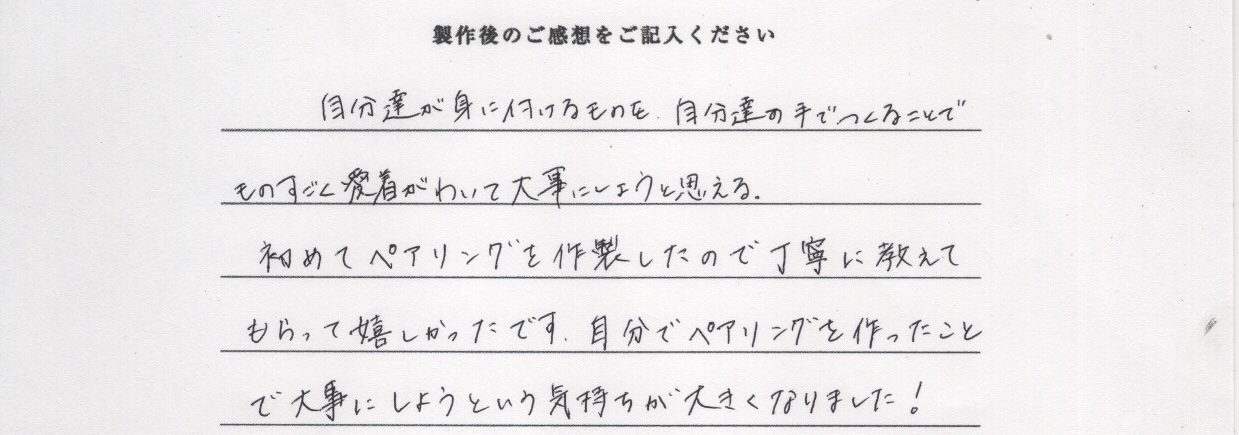 製作後のご感想をご記入ください
自分達が身に付けるものを、自分達の手でつくることで
ものすごく愛着がわいて大事にしようと思える。
初めてペアリングを作製したので丁寧に教えて
もらって嬉しかったです。自分でペアリングを作ったこと
で大事にしようという気持ちが大きくなりました！